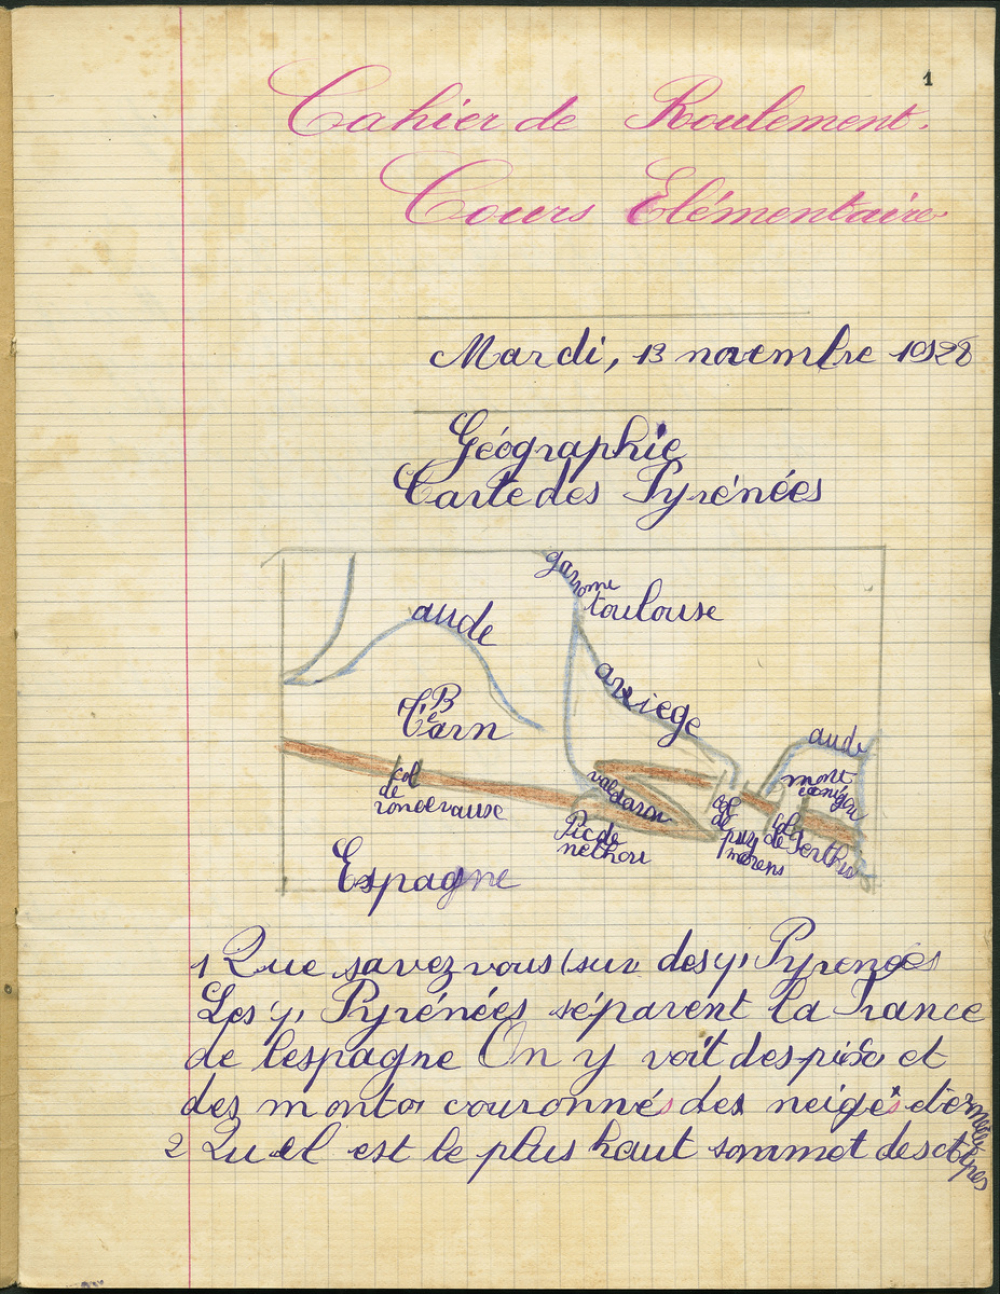 1
Cahier de Roulement.
Cours Elémentaire
Mardi, 13 novembre 1928
Géographie
Carte des Pyrénées
garonne
toulouse
aude
arriege
B
Tarn
aude
mont
canigou
col
de
roncevause
valdaran
Pic de
nethou
col
de
puy
morens
col
de Perthis
Espagne
1 Que savez vous (sur des y) Pyrenées
Les y, Pyrénées séparent la France
de lespagne On y voit des pisc et
des monts couronnés des neiges éternelles
2 Quel est le plus haut sommet des alpes